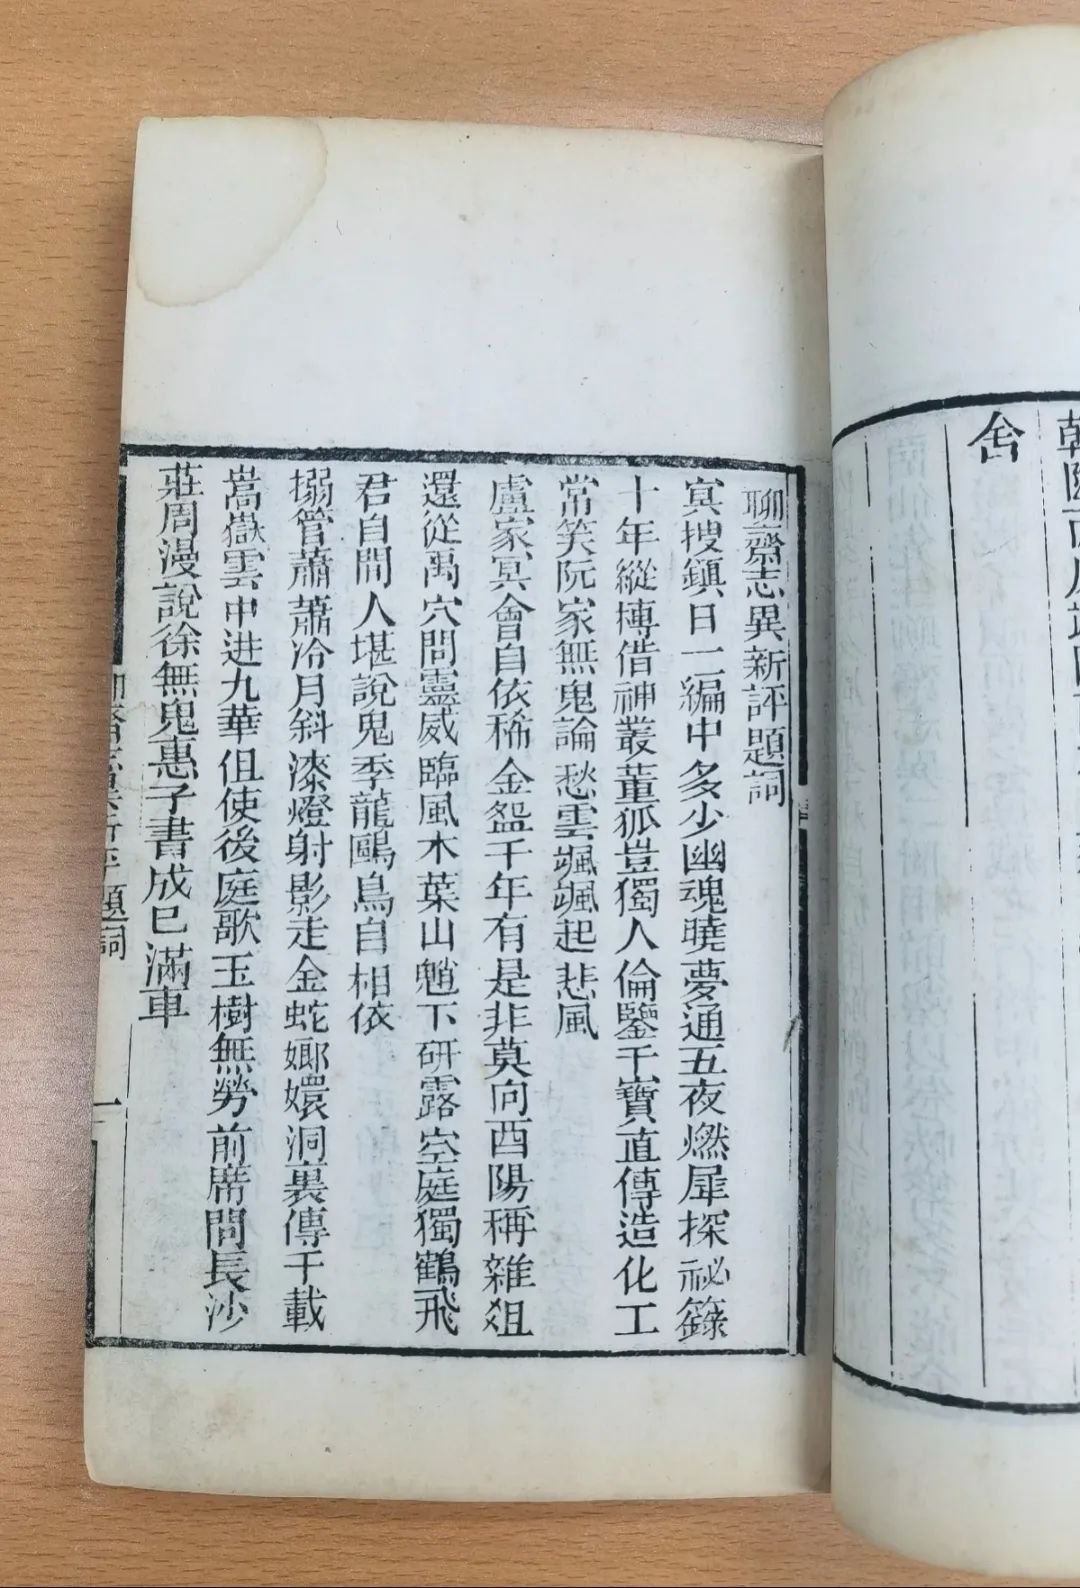 聊齋志異新評題詞
冥搜鎮日一編中多少幽魂曉夢通五夜燃犀探祕籙
十年縱博借神叢董狐豈獨人倫鑒干寶直傳造化工
常笑阮家無鬼論愁雲颯颯起悲風
盧家冥會自依稀金盌千年有是非莫向酉陽稱雜俎
還從禹穴問靈威臨風木葉山魈下研露空庭獨鶴飛
君自閒人堪說鬼季龍鷗鳥自相依
搦管蕭蕭冷月斜漆燈射影走金蛇嫏嬛洞裏傳千載
嵩嶽雲中迸九華但使後庭歌玉樹無勞前席問長沙
莊周漫說徐無鬼惠子書成已滿車
聊齋志異新評題詞
一
舍